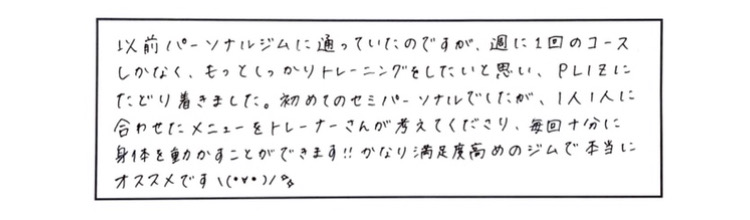 以前パーソナルジムに通っていたのですが、週に1回のコース
しかなく、もっとしっかりトレーニングをしたいと思い、PLIZに
たどり着きました。初めてのセミパーソナルでしたが、1人1人に
合わせたメニューをトレーナーさんが考えてくださり、毎回十分に
身体を動かすことができます!!かなり満足度高めのジムで本当に
オススメです\(•▾•)/✨